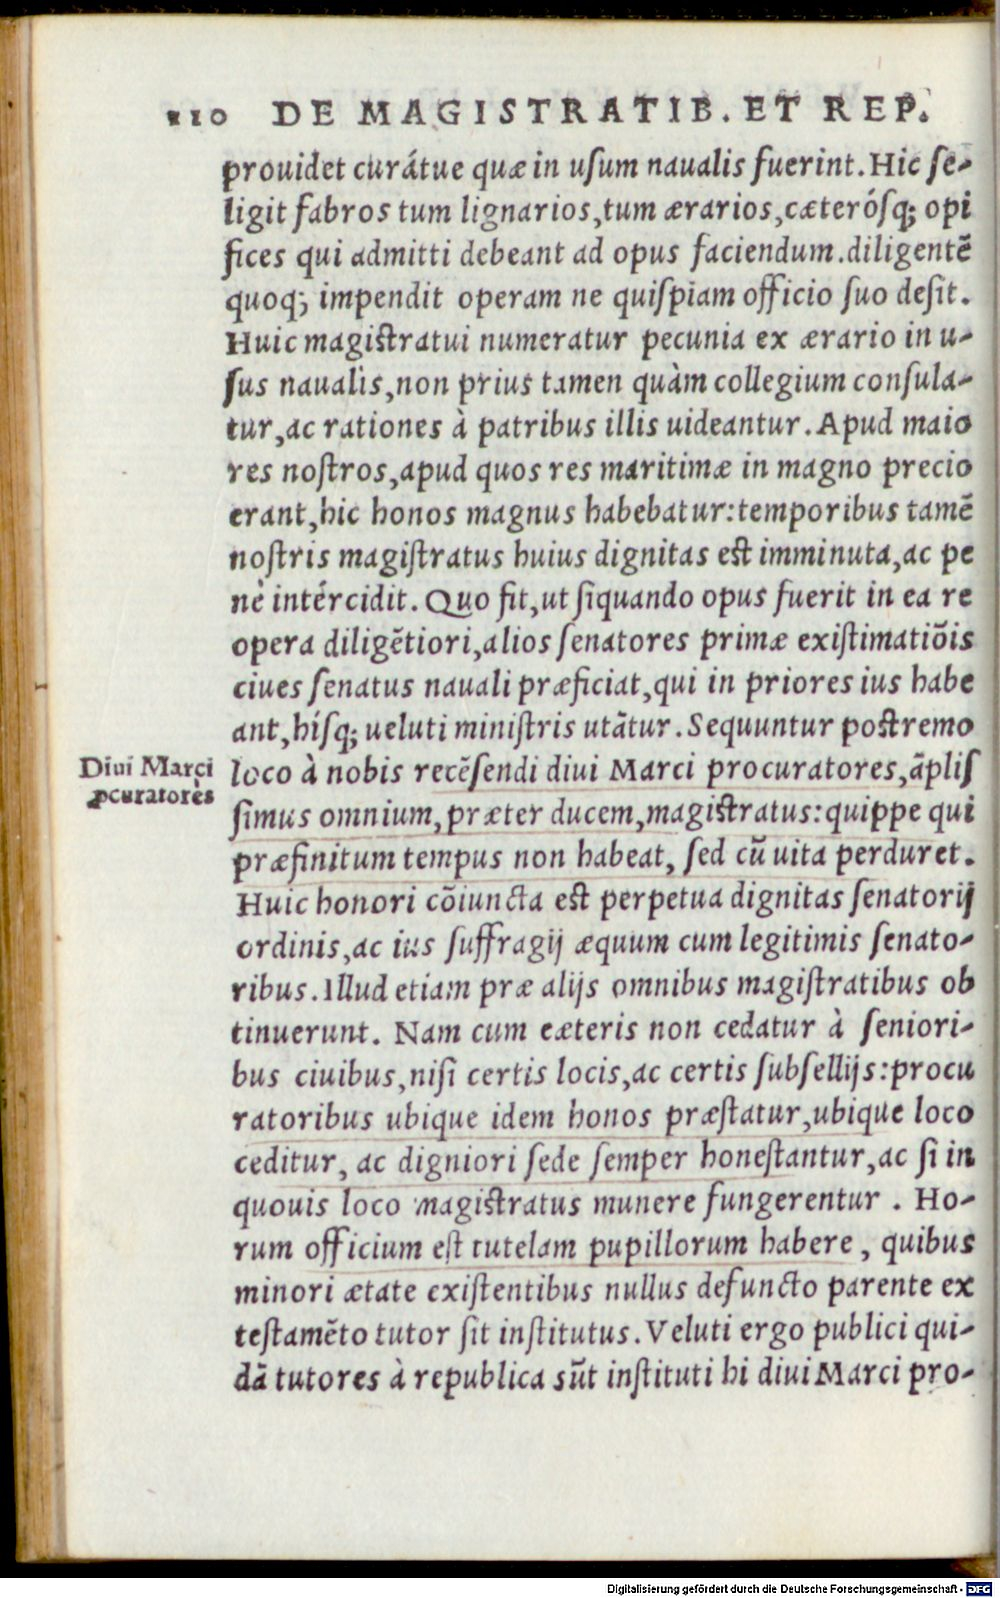 110 DE MAGISTRATIB. ET REP.
prouidet curátue quæ in uſum naualis fuerint. Hic ſe-
ligit fabros tum lignarios, tum ærarios, cæteróſq; opi
fices qui admitti debeant ad opus faciendum. diligentē
quoq; impendit operam ne quiſpiam officio ſuo deſit.
Huic magiſtratui numeratur pecunia ex ærario in u-
ſus naualis, non prius tamen quàm collegium conſula-
tur, ac rationes à patribus illis uideantur. Apud maio
res noſtros, apud quos res maritimæ in magno precio
erant, hic honos magnus habebatur: temporibus tamē
noſtris magiſtratus huius dignitas eſt imminuta, ac pe
nè intércidit. Quo fit, ut ſiquando opus fuerit in ea re
opera diligētiori, alios ſenatores primæ exiſtimatiōis
ciues ſenatus nauali præficiat, qui in priores ius habe
ant, híſq; ueluti miniſtris utātur. Sequuntur poſtremo
Diui Marci
ꝓcuratores
loco à nobis recēſendi diui Marci procuratores, āpliſ
ſimus omnium, præter ducem, magiſtratus: quippe qui
præfinitum tempus non habeat, ſed cū uita perduret.
Huic honori cōiuncta eſt perpetua dignitas ſenatorij
ordinis, ac ius ſuffragij æquum cum legitimis ſenato-
ribus. Illud etiam præ alijs omnibus magiſtratibus ob
tinuerunt. Nam cum eæteris non cedatur à ſeniori-
bus ciuibus, niſi certis locis, ac certis ſubſellijs: procu
ratoribus ubique idem honos præſtatur, ubique loco
ceditur, ac digniori ſede ſemper honeſtantur, ac ſi in
quouis loco magiſtratus munere fungerentur . Ho-
rum officium eſt tutelam pupillorum habere, quibus
minori ætate exiſtentibus nullus defuncto parente ex
teſtamēto tutor ſit inſtitutus. Veluti ergo publici qui-
dā tutores à republica sūt inſtituti hi diui Marci pro-
Digitalisierung gefördert durch die Deutsche Forschungsgemeinschaft - DFG